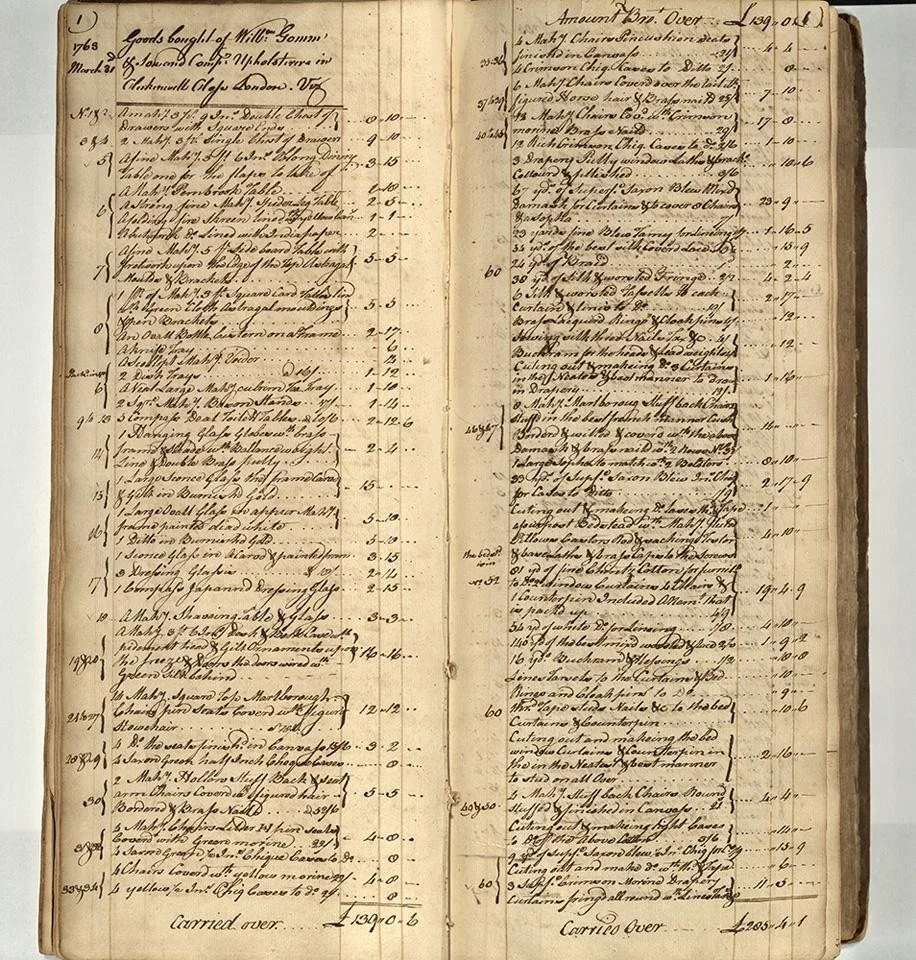 1
1763
March 2d
Goods bought of Willm Gomm
& Son and Compy Upholsterers in
Clerkenwell Close London. Viz
No. 1 & 2 A mahy 3 ft. 9 In. Double Chest of
Drawers with Square 8-10-
3 & 4 2 Mahy 3 ft. Single Chest of Drawers 9-10-
5 A fine Mahy 5 ft 6 Ins Oblong Dining
Table one for the flaps to take of 3-15
A Mahy Pembrook Table 2-10
6 A Strong fine Mahy Spider leg Table 2-5-
A folding fire Skreen Lined 1-1-
Do Lined with India paper 2-
7 A fine Mahy 5 ft Side board Table with
fretwork upon the Edge of the Top Astragal
Moulds & Brackets 5-5-
8 1 Pr. of Mahy 3 ft Square Card Tables lin'd
wth Green Cloth Astragal mouldings
& open Brackets 5-5
An Ovall Bottle Cistern on a frame 2-17-
A knife Tray 6-
A Scollopt Mahy Voider 12-
2 Dish Trays 16/ 1-12
6 A Neat Large Mahy cutrim Tea Tray 1-10
2 Sqre Mahy Bason Stands 1-4
9 to 13 5 Compass Deal Toilet Tables 10/6 2-12-6
14 1 Hanging Glass Globe wth brass
frame & Shade wth Ballance weight
Line & Double Brass pully 2-4
15 1 Large Sconce Glass the frame Carvd
& Gilt in Burnish'd Gold 15-
16 1 Large Ovall Glass in a pper Mahy
frame painted dead white 5-10
1 Ditto in Burnish'd Gold 5-10
17 1 Sconce Glass in a Carvd & painted fram 3-15
3 Dressing Glasses 2-14
1 Compass Japanned Dressing Glass 2-15
18 A Mahy Shaveing Table & Glass 3-3-
19 & 20 A Mahy Desk & Book Case wth
pediment head & Gilt Ornaments upon
the freeze & the doors wired wth
Green Silk behind 16-16-
21 to 27 14 Mahy Square Top Marlborough
Chairs pin Seats Coverd wth figured
Horse hair 12-12-
28 & 29 4 Do the seats finished in Canvass 15/6 3-2
4 Saxon Green half Inch Cheq Cases 8-
30 2 Mahy Hollow Stuff Back & seat
arm Chairs Coverd wth figured hair
Bordered & Brass Nailed 52/6 5-5-
4 Mahy Chairs pin seats
Coverd with Green morine 22/ 4-8-
4 Saxon Green Inc Cheque Cases to do 8
33 & 34 4 Chairs Coverd wth yellow morine 22/ 4-8
4 yellow Inc Cheq Cases to do 2/ 8
Carried over £139-0-6
Amount Bro. Over £139-0-6
35-36 4 Mahy Chairs Pincushion Seats
finished in Canvass 21/ 4-4-
4 Crimson Cheq Cases to Ditto 2/ 8-
37 to 39 6 Mahy Chairs Coverd over the rail wth
figured Horse hair & Brass naild 25/ 7-10
40 to 45 12 Mahy Chairs Coverd wth Crimson
morine Brass Naild 29/ 17-8
12 Rich Crimson Cheq Cases to do 2/6 1-10
3 Drapery Pully window Laths & brackts
Colourd & pollished 3/6 10-6
67 yds of Superfe Saxon Blew Mixd
Damask for Curtains & to cover 8 Chairs
& a sopha 7/ 23-9-
23 yards fine Blew Tamey for linings 1-16-5
34 yds of the best silk Coverd Lace 15-9
24 yds of Braid 2-
60 38 yds of Silk & worsted Fringe 2/2 4-2-4
6 Silk & worsted Tassells to each
Curtain & lines to do 19/ 2-17-
Brass Lacquerd Rings & Cloakpins 4/ 12-
Sewing silk thred Nails Tax &c 4/
Buckram for the heads & lead weights 12-
Cuting out & makeing do 3 Curtains
in the Neatest & best manner to draw
in Drapery 12/ 1-16-
46 & 47 8 Mahy Marlborough Stuff back Chairs
Stuff'd in the best french manner Quilt
Borderd & welted & coverd wth the above
Damask & brass naild wth 2 rows 16-
1 Large Sopha to match wth 2 Bolsters 8-10-
yds of Supfe Saxon Blew Inc Cheq
for Cases to Ditto 1/9 2-17-9
Cuting out & makeing do Cases thd Tape 1-
The bedst
No. 52 A four post Bedstead wth Mahy fluted
Pillows Castors Rod & reaching Tester
& base Laths & brass Caps to the Screws 4-10
81 yd of fine Chintz Cotton for furnitr
to do 2 window Curtains 4 Chairs &
1 Counterpin Included Allowce that
is pack'd up 4/9 19-4-9
54 yd of white do for lineing 1/8 4-10-
140 yd of the best mixd worsted Lace 1-9-2
16 yds Buckram & 1/2 18-8
Lines Tassels to the Curtains & Bed 10-
Rings and Cloak pins to Do 9-
60 Thd Tape Silk Nails &c to the bed
Curtains & Counterpin 10-6
Cuting out and makeing the bed
window Curtains & Counterpin in
the in the Neatest & best manner
to stud on all Over 2-16-
49 & 50 4 Mahy Stuff back Chairs Round
Stuffed & finished in Canvass 21 4-4-
Cuting out & making tight Cases
to do of the above Cotton 3/6 14-
9 yd of Supfe Saxon blew Inc Cheq for Cas 1/9 15-9
Cuting out and make do wth thd Tape 6-
60 3 Supfe Crimson Morend Drapery
Curtains fring'd all round wth Lines Tassels 11-5-
Carried Over £285-4-1